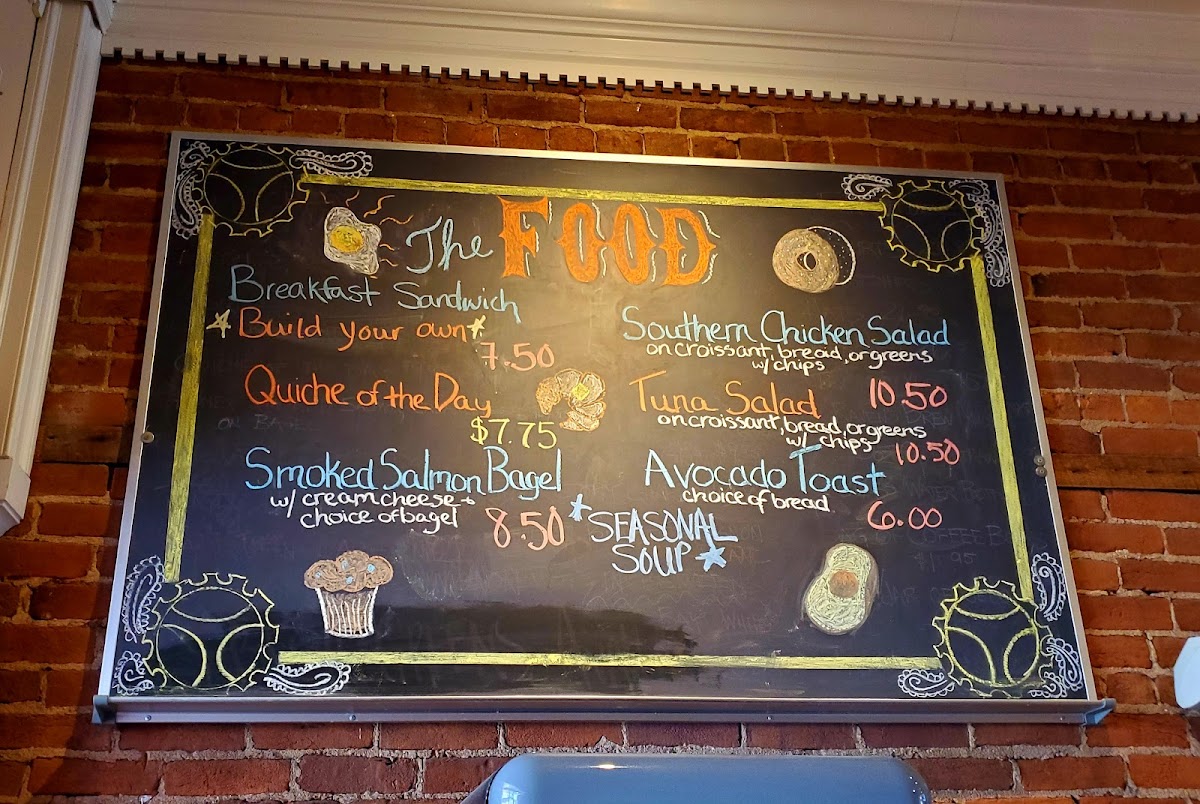 The FOOD
Breakfast Sandwich
Build your own
7.50
Quiche of the Day
$7.75
Smoked Salmon Bagel
w/ cream cheese +
choice of bagel
8.50
Southern Chicken Salad
on croissant, bread, or greens
w/ chips
10.50
Tuna Salad
on croissant, bread, or greens
w/ chips
10.50
Avocado Toast
choice of bread
6.00
SEASONAL
SOUP